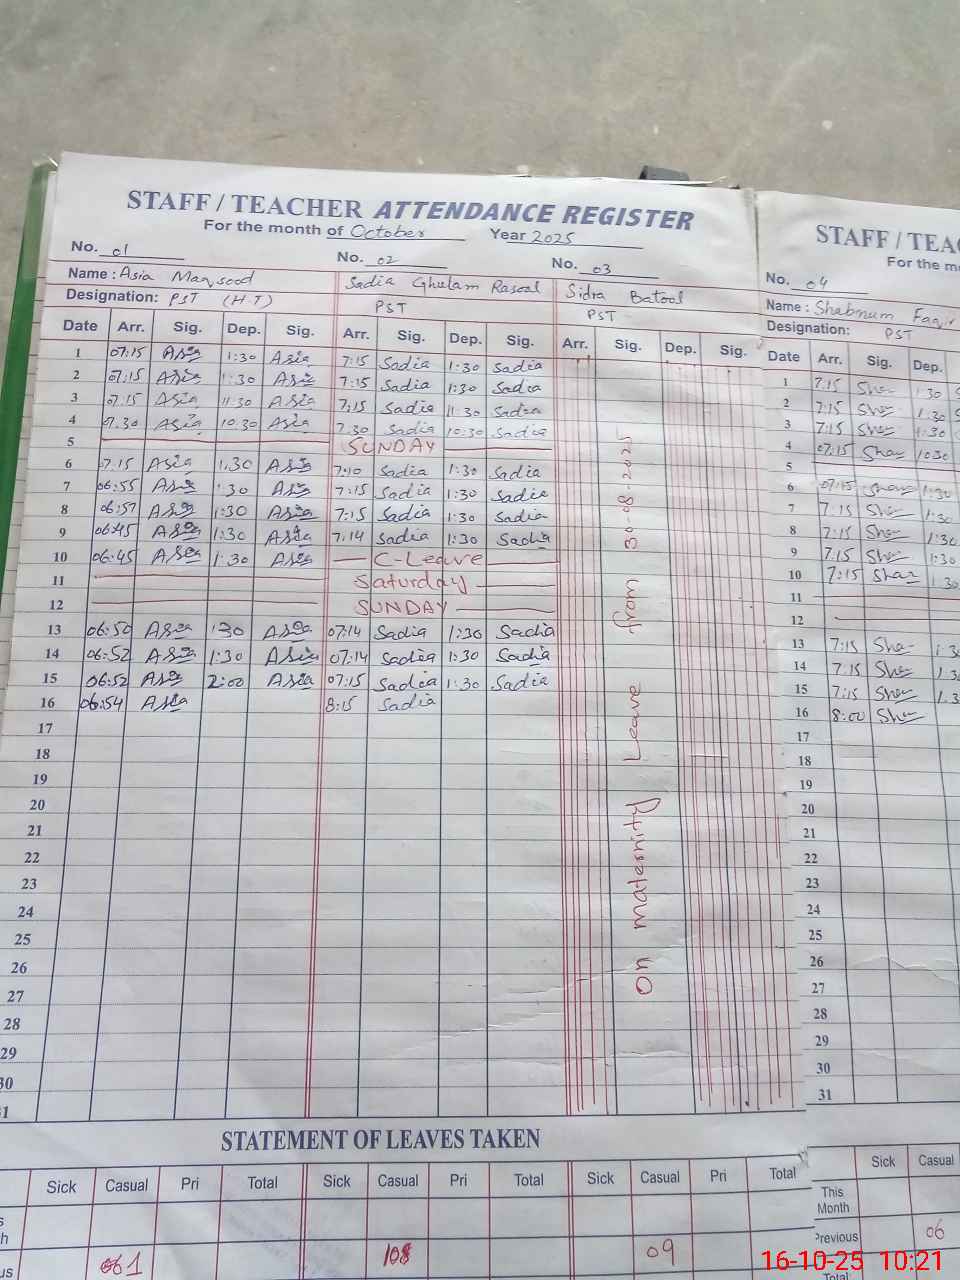 STAFF / TEACHER ATTENDANCE REGISTER
For the month of October Year 2025
No. 01 No. 02 No. 03
Name : Asia Mansood Sadia Ghulam Rasool Sidra Batool
Designation: PST (H.T) PST PST
Date Arr. Sig. Dep. Sig. Arr. Sig. Dep. Sig. Arr. Sig. Dep. Sig.
1 07:15 Asia 1:30 Asia 7:15 Sadia 1:30 Sadia
2 07:15 Asia 1:30 Asia 7:15 Sadia 1:30 Sadia
3 07:15 Asia 11:30 Asia 7:15 Sadia 11:30 Sadia
4 07.30 Asia 10:30 Asia 7.30 Sadia 10:30 Sadia
5 SUNDAY
6 7.15 Asia 1.30 Asia 7:10 Sadia 1:30 Sadia
7 06:55 Asia :30 Asia 7:15 Sadia 1:30 Sadia
8 06:57 Asia 1:30 Asia 7:15 Sadia 1:30 Sadia
9 06:45 Asia 1:30 Asia 7:14 Sadia 1:30 Sadia
10 06:45 Asia 1:30 Asia C-Leave
11 Saturday
12 SUNDAY
13 06:50 Asia :30 Asia 07:14 Sadia 1:30 Sadia
14 06:52 Asia 1:30 Asia 07:14 Sadia 1:30 Sadia
15 06:52 Asia 2:00 Asia 07:15 Sadia 1:30 Sadia
16 06:54 Asia 8:15 Sadia
17
18
19
20
21
22
23
24
25
26
27
28
29
30
31
On maternity Leave from 30-08-2025
STATEMENT OF LEAVES TAKEN
Sick Casual Pri Total Sick Casual Pri Total Sick Casual Pri Total
108 09
STAFF / TEA
For the m
No. 04
Name : Shabnum
Designation: PST
Date Arr. Sig. Dep.
1 7:15 Sha 1:30
2 7:15 Sha 1:30
3 7:15 Sha 1:30
4 07:15 Sha 10:30
5
6 07:15 Sha 1:30
7 7:15 Sha 1:30
8 7:15 Sha 1:30
9 7:15 Sha 1:30
10 7:15 Sha 1:30
11
12
13 7:15 Sha 1:3
14 7:15 Sha 1.3
15 7:15 Sha 1.3
16 8:00 Sha
17
18
19
20
21
22
23
24
25
26
27
28
29
30
31
Sick Casual
This
Month
Previous 06
Total
16-10-25 10:21